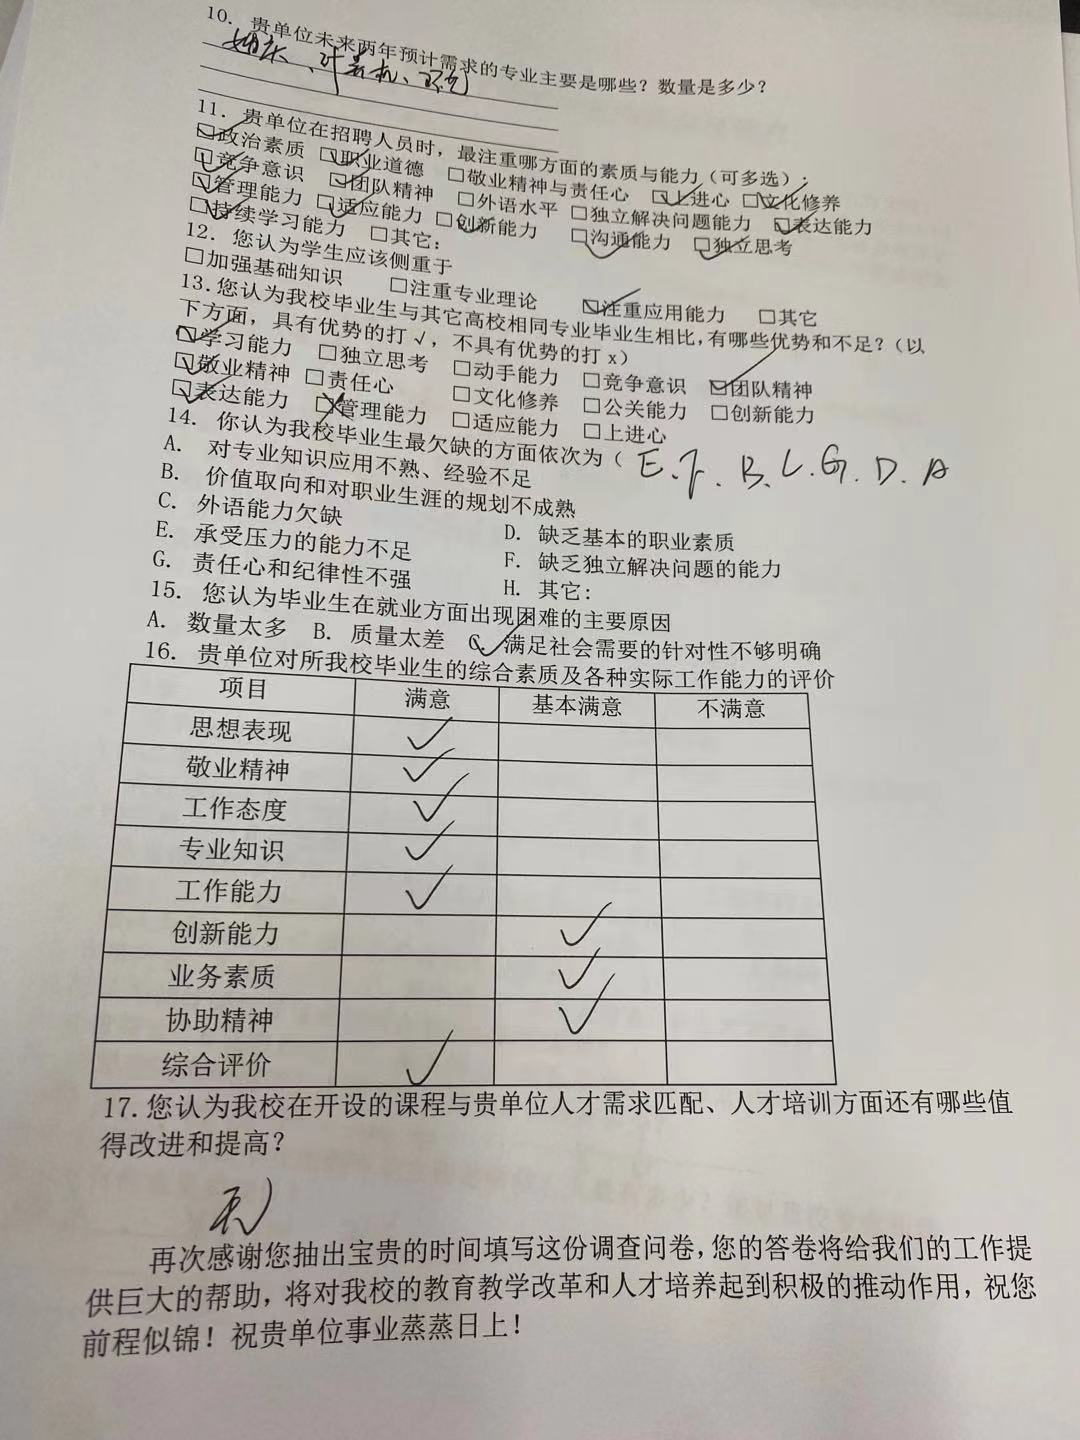 10. 贵单位未来两年预计需求的专业主要是哪些？数量是多少？
、计算机、
11. 贵单位在招聘人员时，最注重哪方面的素质与能力（可多选）：
☑政治素质 ☑职业道德 □敬业精神与责任心 ☑上进心 ☑文化修养
☑竞争意识 ☑团队精神 □外语水平 □独立解决问题能力 ☑表达能力
☑管理能力 ☑适应能力 ☑创新能力 ☑沟通能力 ☑独立思考
☑持续学习能力 □其它：
12. 您认为学生应该侧重于
□加强基础知识 □注重专业理论 ☑注重应用能力 □其它
13.您认为我校毕业生与其它高校相同专业毕业生相比，有哪些优势和不足？（以
下方面，具有优势的打√，不具有优势的打x）
☑学习能力 □独立思考 □动手能力 □竞争意识 ☑团队精神
☑敬业精神 □责任心 □文化修养 □公关能力 □创新能力
☑表达能力 ☒管理能力 □适应能力 □上进心
14. 你认为我校毕业生最欠缺的方面依次为（ E.F.B.C.G.D.A
A. 对专业知识应用不熟、经验不足
B. 价值取向和对职业生涯的规划不成熟
C. 外语能力欠缺 D. 缺乏基本的职业素质
E. 承受压力的能力不足 F. 缺乏独立解决问题的能力
G. 责任心和纪律性不强 H. 其它：
15. 您认为毕业生在就业方面出现困难的主要原因
A. 数量太多 B. 质量太差 C✓ 满足社会需要的针对性不够明确
16. 贵单位对所我校毕业生的综合素质及各种实际工作能力的评价
项目 满意 基本满意 不满意
思想表现 ✓
敬业精神 ✓
工作态度 ✓
专业知识 ✓
工作能力 ✓
创新能力 ✓
业务素质 ✓
协助精神 ✓
综合评价 ✓
17.您认为我校在开设的课程与贵单位人才需求匹配、人才培训方面还有哪些值
得改进和提高？
无
再次感谢您抽出宝贵的时间填写这份调查问卷，您的答卷将给我们的工作提
供巨大的帮助，将对我校的教育教学改革和人才培养起到积极的推动作用，祝您
前程似锦！祝贵单位事业蒸蒸日上！